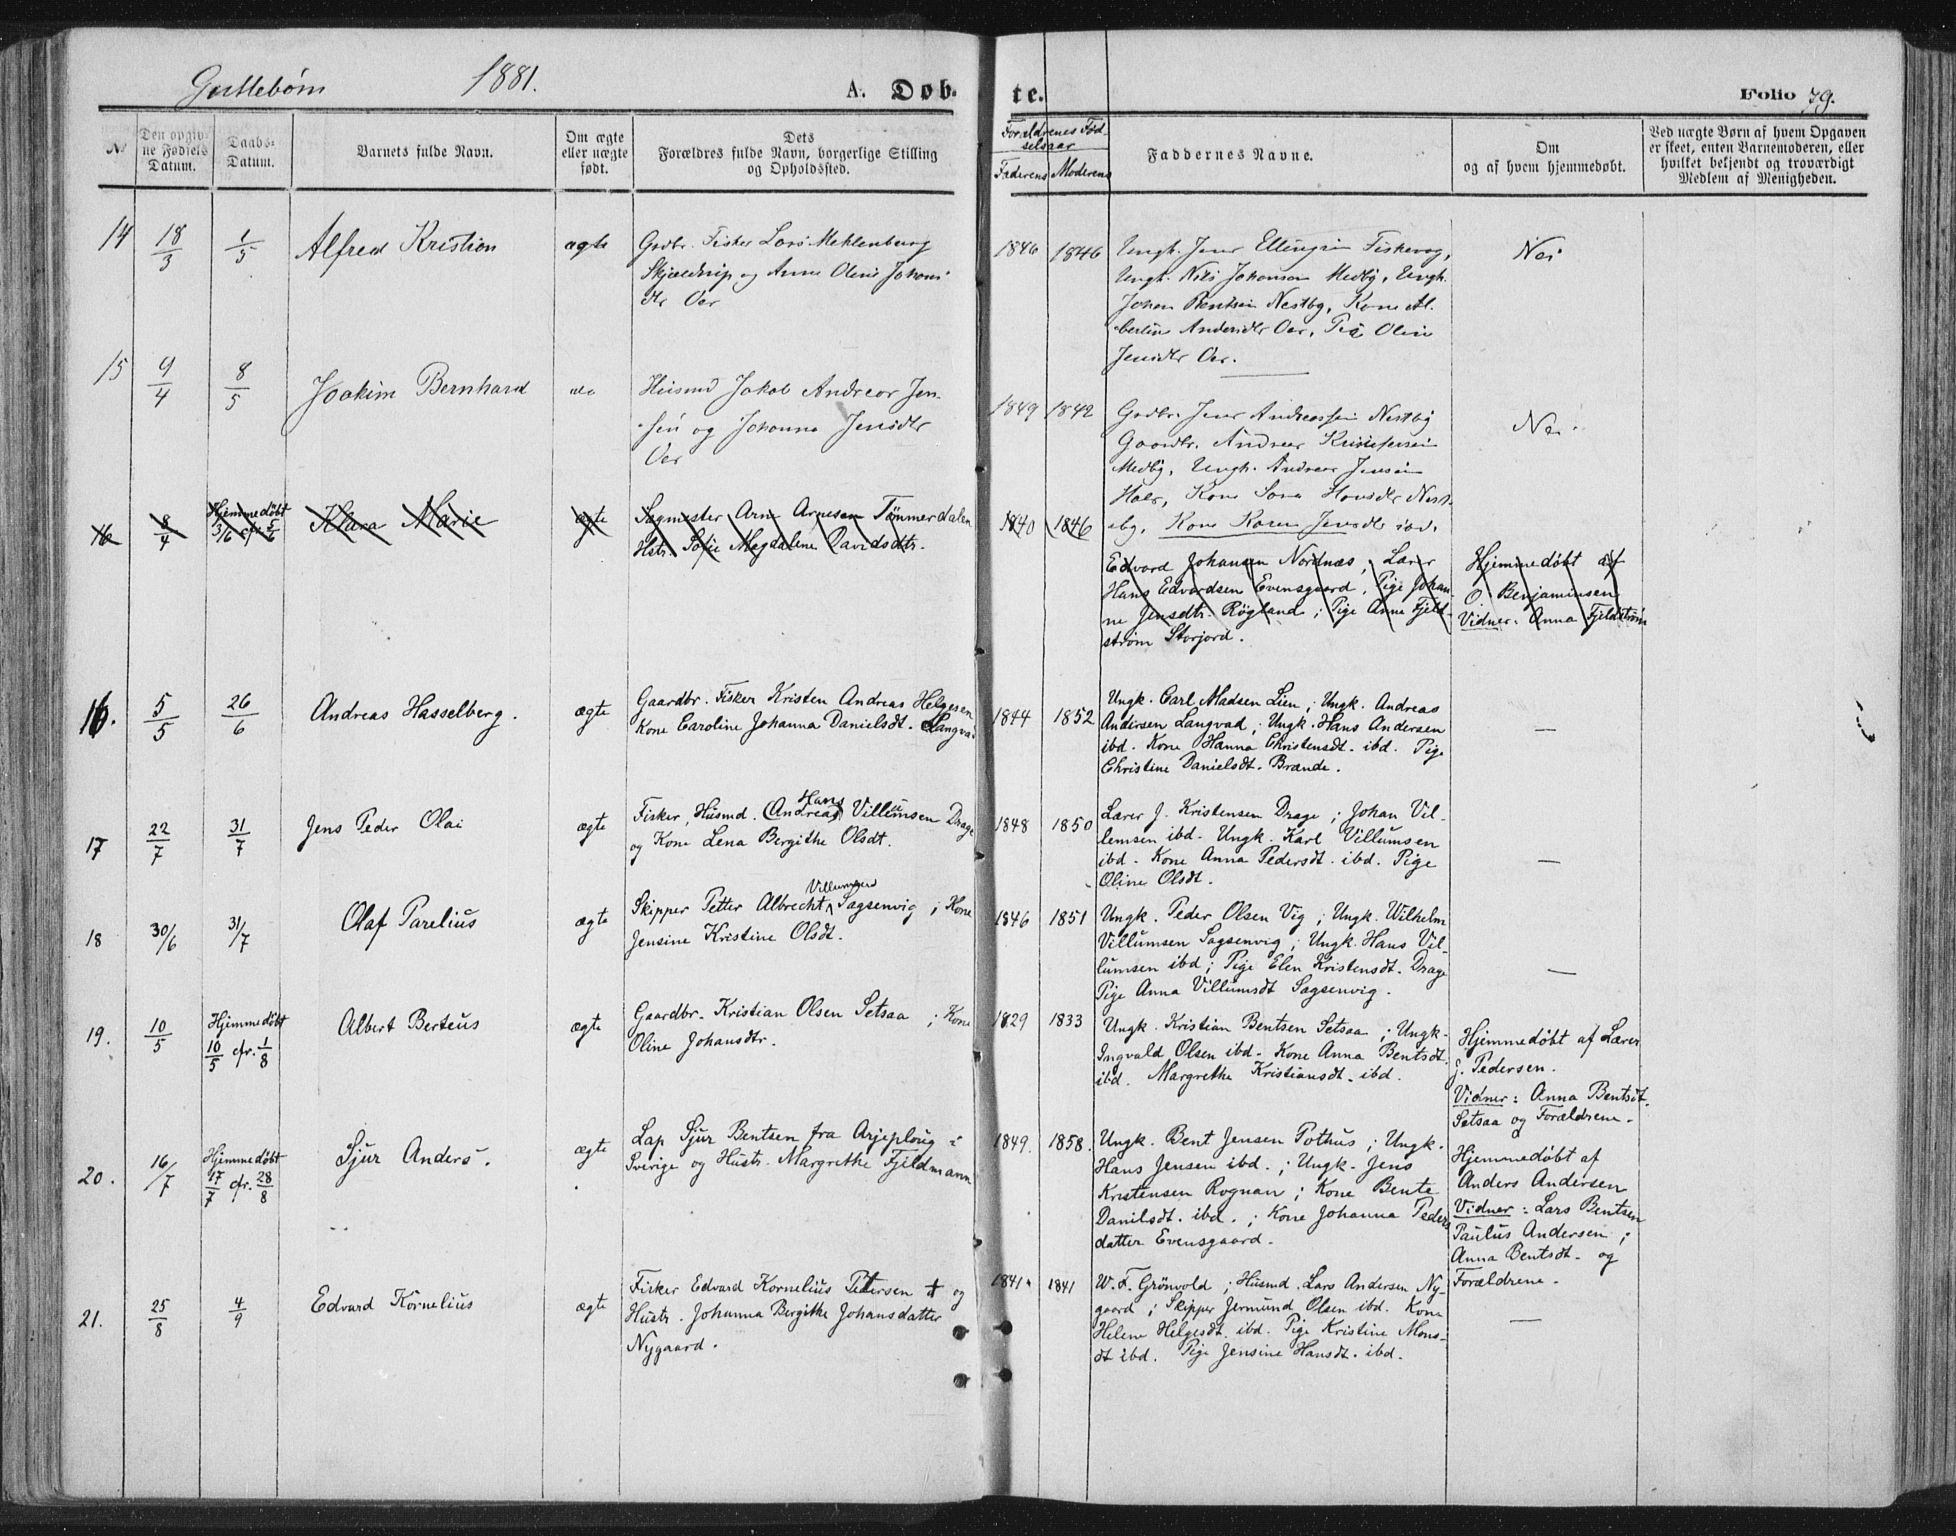 Guttebørn 1881. A. Døb- te. Folio 79.
№
Den opgiv-
ne Fødsels
Datum.
Daabs-
Datum.
Barnets fulde Navn.
Om ægte
eller uægte
født.
Dets
Forældres fulde Navn, borgerlige Stilling
og Opholdssted.
Forældrenes Fød-
selsaar
Faderens Moderens
Faddernes Navne.
Om
og af hvem hjemmedøbt.
Ved uægte Børn af hvem Opgaven
er skeet, enten Barnemoderen, eller
hvilket bekjendt og troværdigt
Medlem af Menigheden.
14 18/3 1/5 Alfred Kristian ægte
Grdbr. Fisker Lars Mehlenburg
Skjældrup og Anne Oline Johans
dtr Oer
1846 1846
Ungk. Jens Ellingsen Fiskevog,
Ungk. Nils Johansen Medby, Ungk.
Johan Bentsen Nestby, Kone Al-
bertine Andersdtr Oer, Pige Oline
Jensdtr Oer.
Nei
15 9/4 8/5 Joakim Bernhard do
Husmd Jakob Andreas Jen-
sen og Johanna Jensdtr
Oer
1849 1842
Grdbr. Jens Andreassen Nestby
Gaardbr. Andreas Kristofersen
Medby, Ungk. Andreas Jensen
Hals, Kone Sara Hansdtr Nest-
by, Kone Karen Jensdtr ibd.
Nei.
16 8/4 Hjemmedøbt
3/6 cfr. 5/6
Klara Marie ægte
Sagmester Arne Arnesen Tømmerdalen
Hstr. Sofie Magdalene Davidsdtr.
1840 1846
Edvard Johansen Nordnæs, Lærer
Hans Edvardsen Evensgaard, Pige Johan-
ne Jensdtr. Røgland; Pige Anne Fjeld-
strøm Storjord.
Hjemmedøbt af
O. Benjaminsen
Vidner: Anna Fjeldstrøm
16. 5/5 26/6 Andreas Hasselberg. ægte
Gaardbr. Fisker Kristen Andreas Helgesen
Kone Caroline Johanna Danielsdt. Langvad
1844 1852
Ungk. Carl Madsen Lien; Ungk. Andreas
Andersen Langvad; Ungk. Hans Andersen
ibd. Kone Hanna Christensdt. ibd. Pige
Christine Danielsdt. Brænde.
—
17 22/7 31/7 Jens Peder Olai ægte
Hans
Fisker, Husmd. (Andreas) Villumsen Drage
og Kone Lena Bergithe Olsdt.
1848 1850
Lærer J. Kristensen Drage; Johan Vil-
lemsen ibd. Ungk. Karl Villumsen
ibd. Kone Anna Pedersdt. ibd. Pige
Oline Olsdt.
—
18 30/6 31/7 Olaf Parelius ægte
Villumsen
Skipper Petter Albrecht Sagsenvig; Kone
Jensine Kristine Olsdt.
1846 1851
Ungk. Peder Olsen Vig; Ungk. Wilhelm
Villumsen Sagsenvig; Ungk. Hans Vil-
lumsen ibd; Pige Elen Kristensdt. Drage
Pige Anna Villumsdt Sagsenvig.
—
19. 10/5 Hjemmedøbt
10/5 cfr. 1/8
Albert Berteus ægte
Gaardbr. Kristian Olsen Setsaa; Kone
Oline Johansdtr.
1829 1833
Ungk. Kristian Bentsen Setsaa; Ungk.
Ingvald Olsen ibd. Kone Anna Bentsdt.
ibd. Margrethe Kristiansdt. ibd.
Hjemmedøbt af Lærer
J. Pedersen.
Vidner: Anna Bentsdt.
Setsaa og Forældrene.
20. 16/7 Hjemmedøbt
17/7 cfr. 28/8
Sjur Anders. ægte
Lap Sjur Bentsen fra Arjeploug i
Sverige og Hustr. Margrethe Fjeldmann
1849. 1858.
Ungk. Bent Jensen Pothus; Ungk.
Hans Jensen ibd.; Ungk. Jens
Kristensen Rognan; Kone Bente
Danilsdt. ibd.; Kone Johanna Peders
datter Evensgaard.
Hjemmedøbt af
Anders Andersen
Vidner: Lars Bentsen
Paulus Andersen;
Anna Bentsdt. og
Forældrene.
21. 25/8 4/9 Edvard Kornelius ægte
Fisker Edvard Kornelius Petersen † og
Hustr. Johanna Bergithe Johansdatter
Nygaard.
1841. 1841
W. F. Grönvold; Husmd. Lars Andersen Ny-
gaard; Skipper Jermund Olsen ibd. Kone
Helene Helgesdt. ibd. Pige Kristine Mons-
dt ibd. Pige Jensine Hansdt. ibd.
—